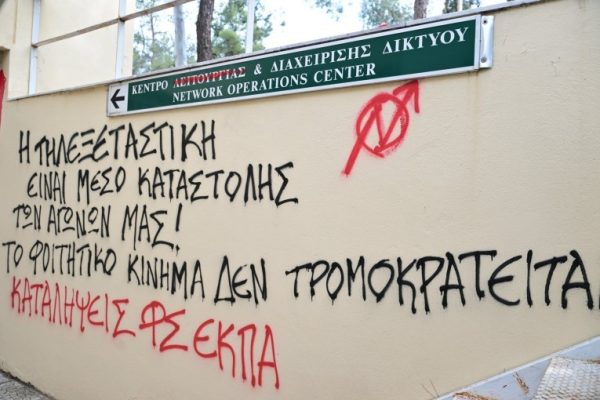 ΚΕΝΤΡΟ ΛΕΙΤΟΥΡΓΙΑΣ & ΔΙΑΧΕΙΡΙΣΗΣ ΔΙΚΤΥΟΥ
NETWORK OPERATIONS CENTER
Η ΤΗΛΕΞΕΤΑΣΤΙΚΗ
ΕΙΝΑΙ ΜΕΣΟ ΚΑΤΑΣΤΟΛΗΣ
ΤΩΝ ΑΓΩΝΩΝ ΜΑΣ!
ΤΟ ΦΟΙΤΗΤΙΚΟ ΚΙΝΗΜΑ ΔΕΝ ΤΡΟΜΟΚΡΑΤΕΙΤΑ
ΚΑΤΑΛΗΨΕΙΣ ΦΣ ΕΚΠΑ